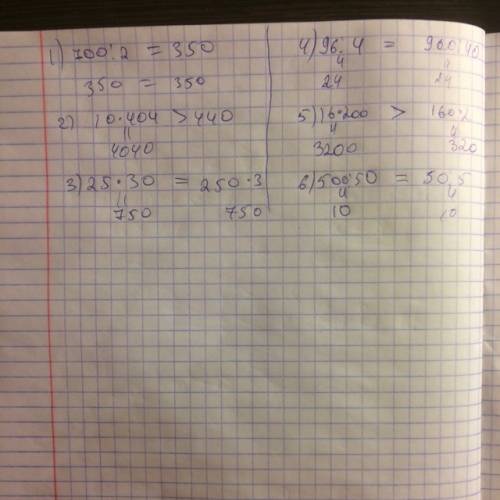 1) 700:2 = 350
350 = 350
2) 10·404 > 440
"
4040
3) 25·30 = 250·3
"
750 750
4) 96:4 = 960:40
" "
24 24
5) 16·200 > 160·2
" "
3200 320
6) 500:50 = 50:5
" "
10 10